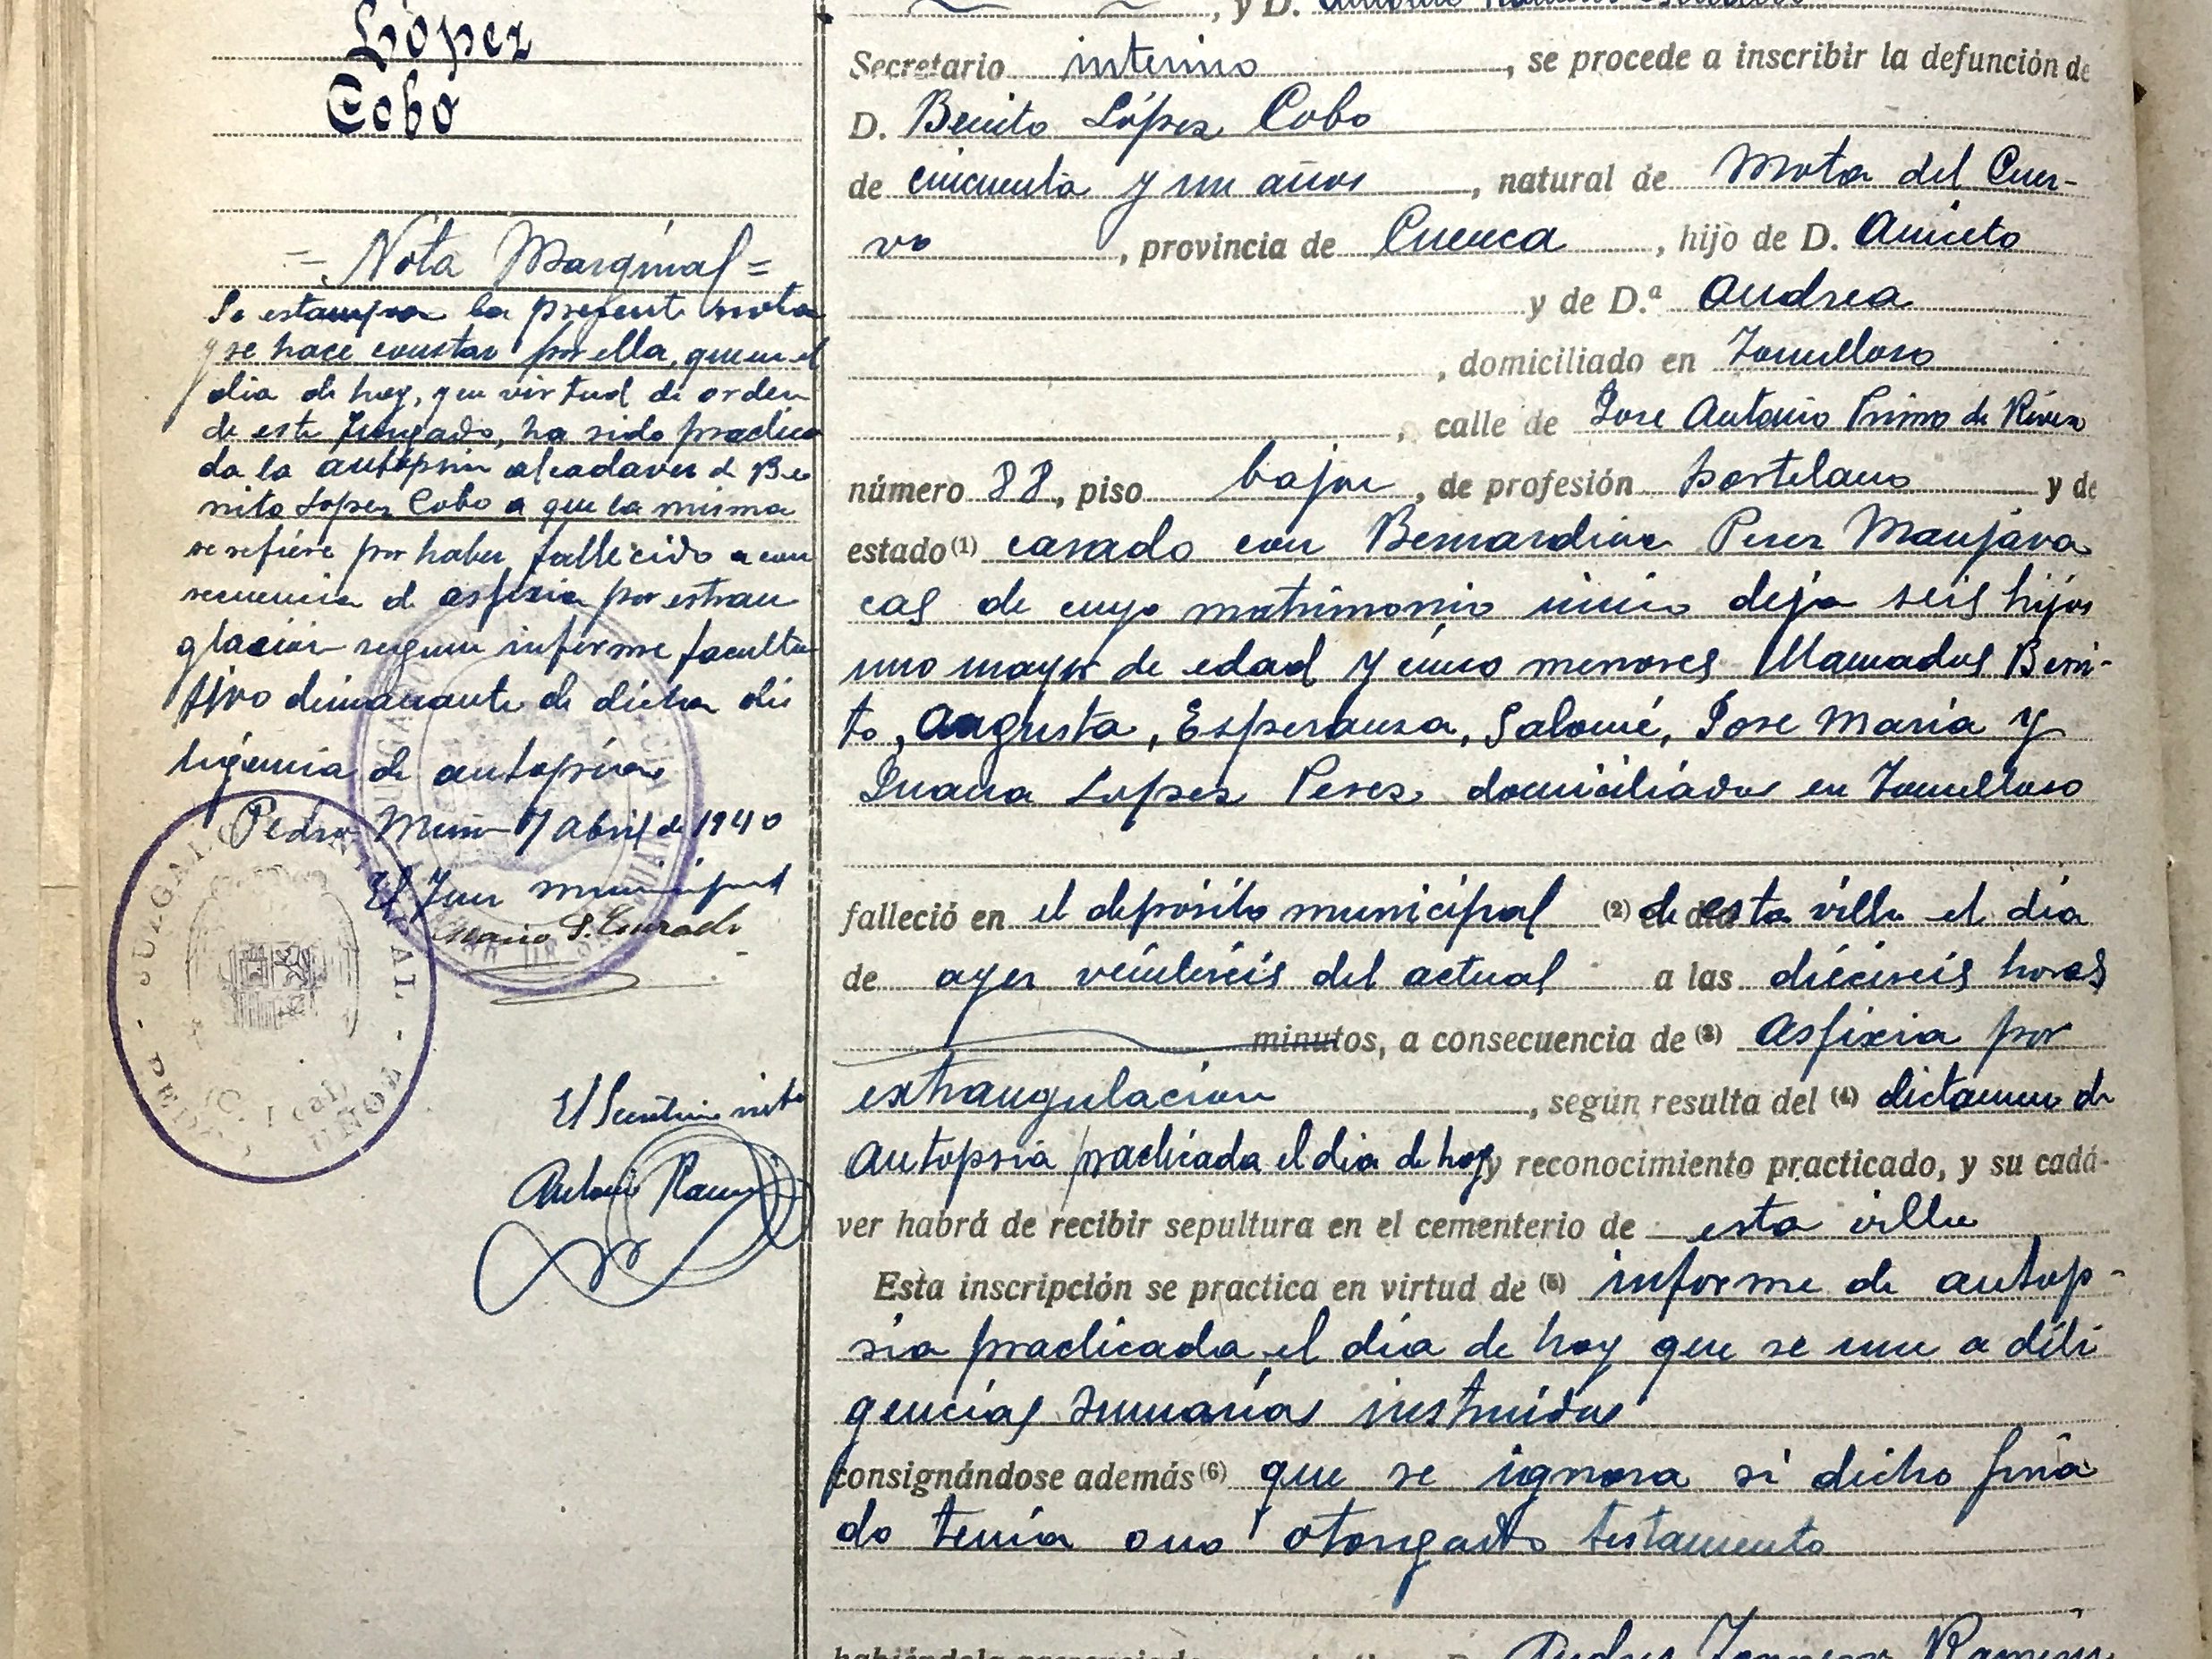 López
Cobo
= Nota Marginal =
Se estampa la presente nota
y se hace constar por ella, que en el
dia de hoy, y en virtud de orden
de este Juzgado, ha sido practica
da la autopsia al cadaver de Be
nito Lopez Cobo a que la misma
se refiere por haber fallecido a con
secuencia de asfixia por estran
glacion segun informe faculta
tivo dimanante de dicha dili
ligencia de autopsia
Pedro Muñoz 7 Abril de 1940
El Juez municipal
El Secretario
Antonio Ramirez
JUZGADO MUNICIPAL
, y D. Antonio
Secretario interino , se procede a inscribir la defunción de
D. Benito López Cobo
de cincuenta y un años , natural de Mota del Cuer-
vo , provincia de Cuenca , hijo de D. Aniceto
y de D.ª Andrea
, domiciliado en Tomelloso
, calle de Jose Antonio Primo de Rivera
número 88, piso bajo , de profesión hortelano y de
estado (1) casado con Bernardina Perez Manjava
cas de cuyo matrimonio unico deja seis hijos
uno mayor de edad y cinco menores llamados Beni-
to, Augusta, Esperanza, Salomé, Jose Maria y
Juana Lopez Perez domiciliados en Tomelloso
falleció en el deposito municipal (2) de esta villa el dia
de ayer veintiseis del actual a las dieciseis horas
minutos, a consecuencia de (3) Asfixia por
extrangulacion , según resulta del (4) dictamen de
Autopsia practicada el dia de hoy y reconocimiento practicado, y su cadá-
ver habrá de recibir sepultura en el cementerio de esta villa
Esta inscripción se practica en virtud de (5) informe de autop-
sia practicada el dia de hoy que se une a dili
gencias sumarias instruidas
consignándose además (6) que se ignora si dicho fina
do tenia o no otorgado testamento